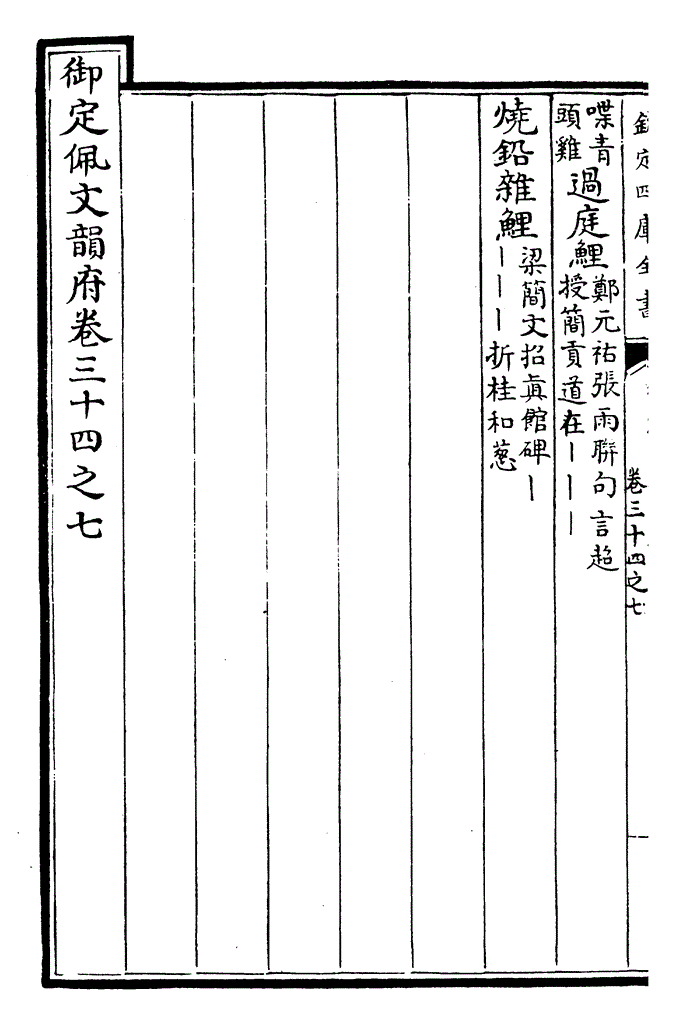 欽定四庫全書
卷三十四之七
喋青
頭雞
過庭鯉
鄭元祐張雨聯句言超
授簡貢道在丨丨丨
燒鉛雜鯉
梁簡文招眞館碑丨
丨丨丨折桂和葱
御定佩文韻府卷三十四之七